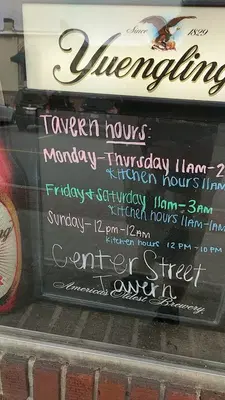 Since 1829
Yuengling
Tavern hours:
Monday-Thursday 11am-2
*Kitchen hours 11am
Friday + Saturday 11am-3am
*Kitchen hours 11am-1am
Sunday-12pm-12am
Kitchen hours 12pm-10pm
Center Street
Tavern
America's Oldest Brewery